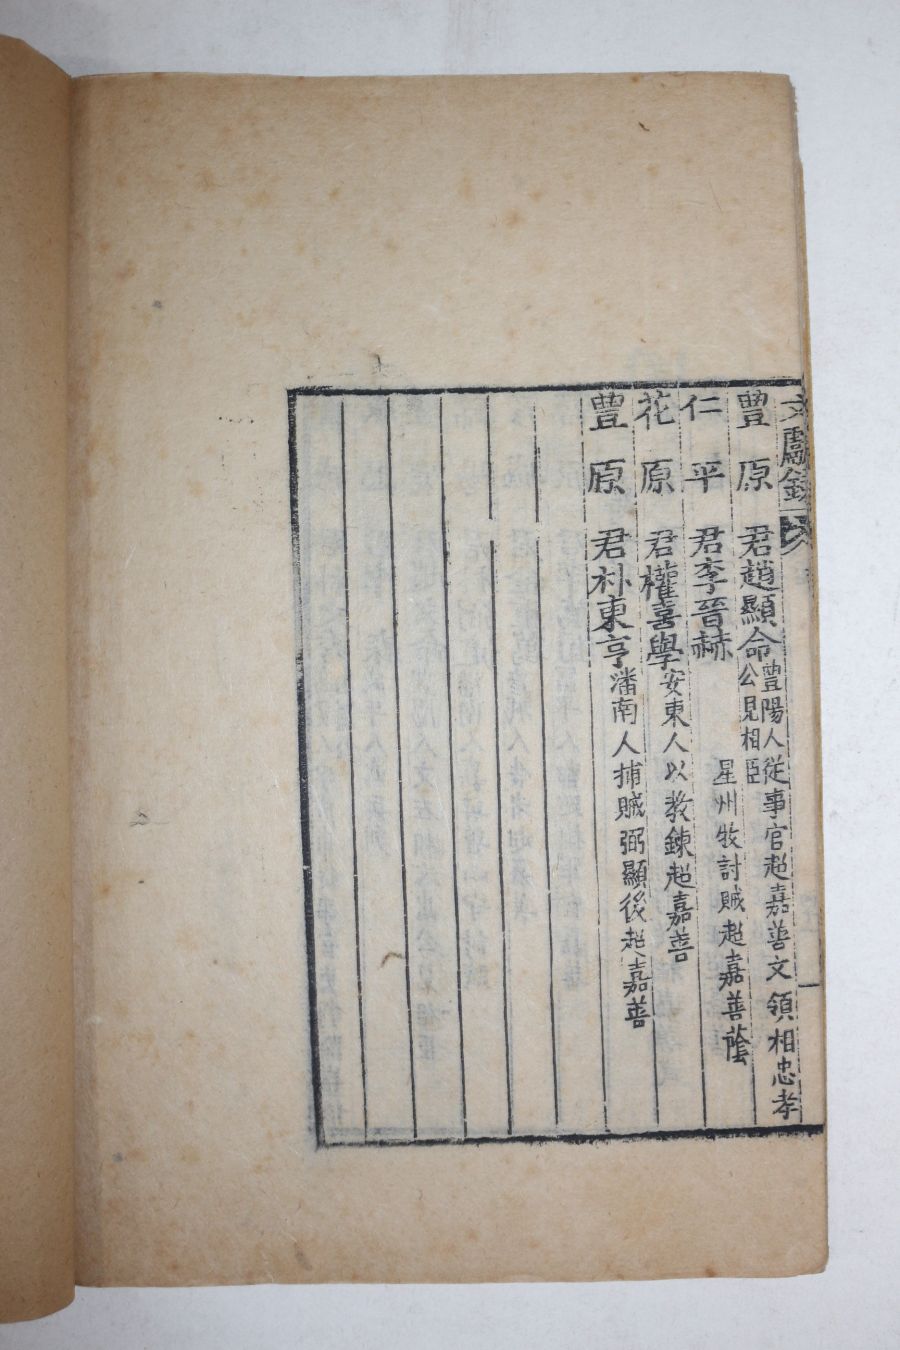 文獻錄
豊原君趙顯命豊陽人從事官超嘉善文領相忠孝
公見相臣
仁平君李晉赫星州牧討賊超嘉善蔭
花原君權喜學安東人以教鍊超嘉善
豊原君朴東亨潘南人捕賊弼顯後超嘉善